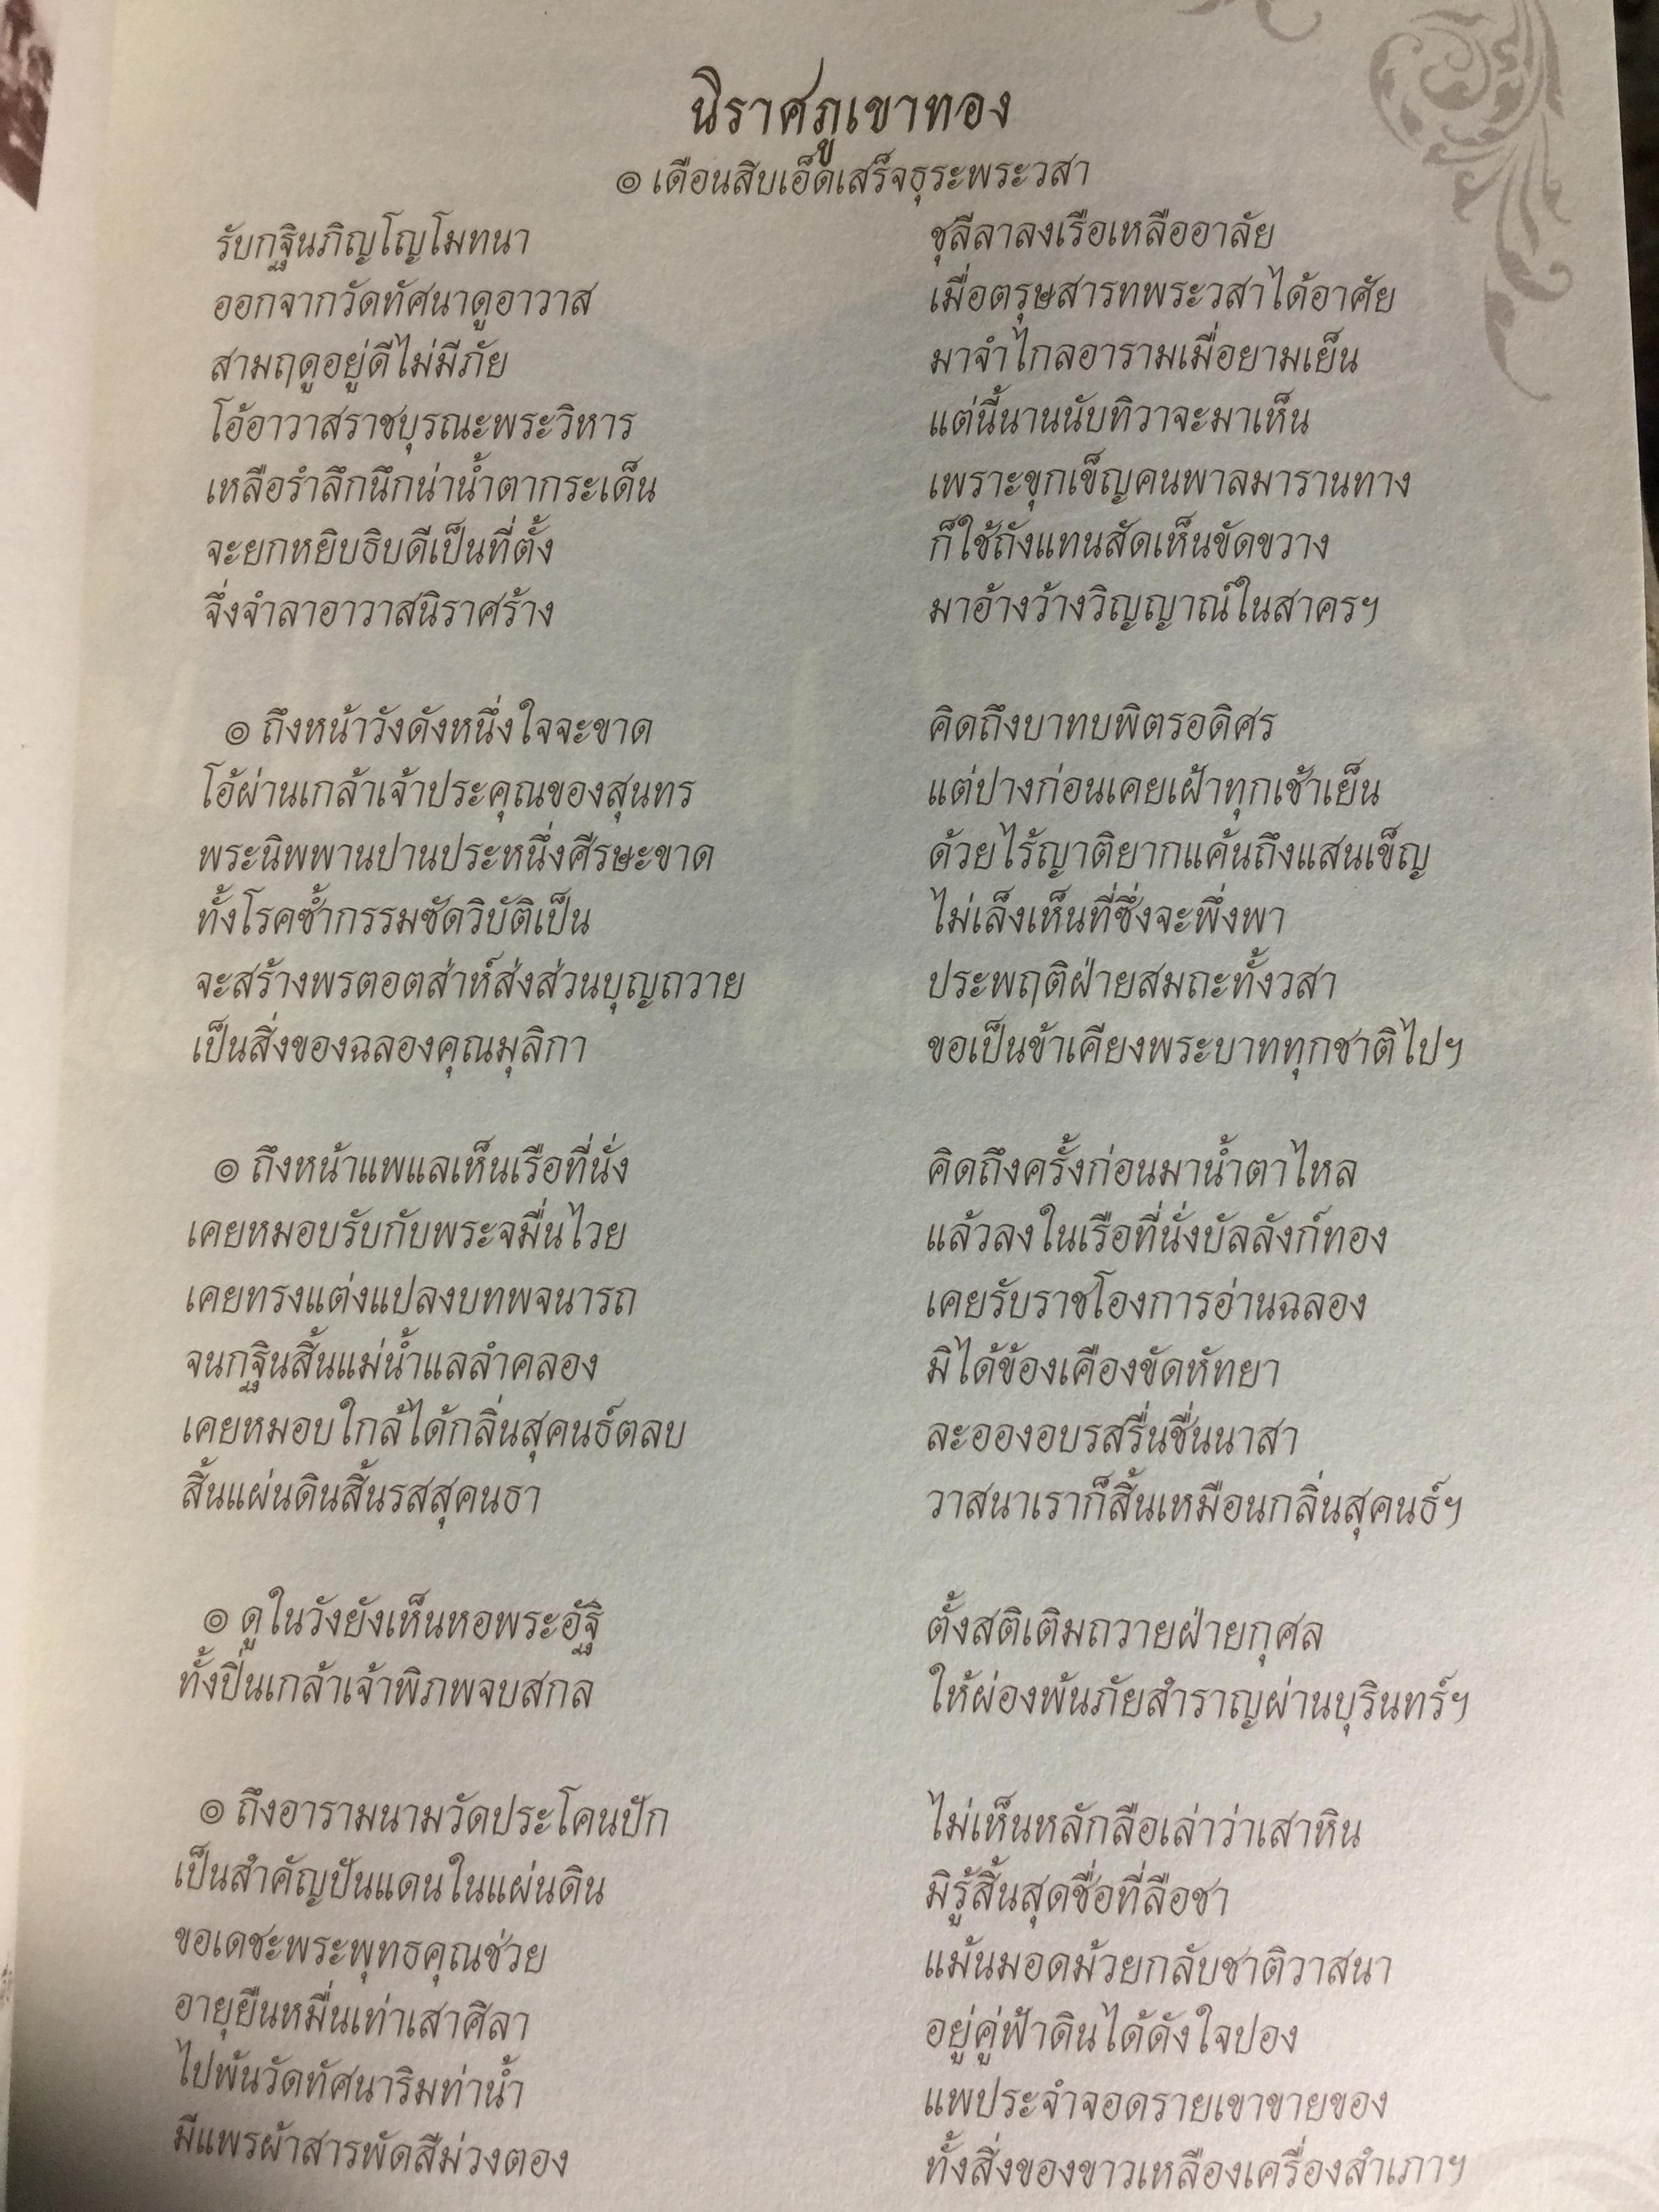 นิราศภูเขาทอง
๏ เดือนสิบเอ็ดเสร็จธุระพระวสา
รับกฐินภิญโญโมทนา ชุลีลาลงเรือเหลืออาลัย
ออกจากวัดทัศนาดูอาวาส เมื่อตรุษสารทพระวสาได้อาศัย
สามฤดูอยู่ดีไม่มีภัย มาจำไกลอารามเมื่อยามเย็น
โอ้อาวาสราชบุรณะพระวิหาร แต่นี้นานนับทิวาจะมาเห็น
เหลือรำลึกนึกน่าน้ำตากระเด็น เพราะขุกเข็ญคนพาลมารานทาง
จะยกหยิบธิบดีเป็นที่ตั้ง ก็ใช้ถังแทนสัดเห็นขัดขวาง
จึ่งจำลาอาวาสนิราศร้าง มาอ้างว้างวิญญาณ์ในสาครฯ
๏ ถึงหน้าวังดังหนึ่งใจจะขาด คิดถึงบาทบพิตรอดิศร
โอ้ผ่านเกล้าเจ้าประคุณของสุนทร แต่ปางก่อนเคยเฝ้าทุกเช้าเย็น
พระนิพพานปานประหนึ่งศีรษะขาด ด้วยไร้ญาติยากแค้นถึงแสนเข็ญ
ทั้งโรคซ้ำกรรมซัดวิบัติเป็น ไม่เล็งเห็นที่ซึ่งจะพึ่งพา
จะสร้างพรตอตส่าห์ส่งส่วนบุญถวาย ประพฤติฝ่ายสมถะทั้งวสา
เป็นสิ่งของฉลองคุณมุลิกา ขอเป็นข้าเคียงพระบาททุกชาติไปฯ
๏ ถึงหน้าแพแลเห็นเรือที่นั่ง คิดถึงครั้งก่อนมาน้ำตาไหล
เคยหมอบรับกับพระจมื่นไวย แล้วลงในเรือที่นั่งบัลลังก์ทอง
เคยทรงแต่งแปลงบทพจนารถ เคยรับราชโองการอ่านฉลอง
จนกฐินสิ้นแม่น้ำแลลำคลอง มิได้ข้องเคืองขัดหัทยา
เคยหมอบใกล้ได้กลิ่นสุคนธ์ตลบ ละอองอบรสรื่นชื่นนาสา
สิ้นแผ่นดินสิ้นรสสุคนธา วาสนาเราก็สิ้นเหมือนกลิ่นสุคนธ์ฯ
๏ ดูในวังยังเห็นหอพระอัฐิ ตั้งสติเติมถวายฝ่ายกุศล
ทั้งปิ่นเกล้าเจ้าพิภพจบสกล ให้ผ่องพ้นภัยสำราญผ่านบุรินทร์ฯ
๏ ถึงอารามนามวัดประโคนปัก ไม่เห็นหลักลือเล่าว่าเสาหิน
เป็นสำคัญปันแดนในแผ่นดิน มิรู้สิ้นสุดชื่อที่ลือชา
ขอเดชะพระพุทธคุณช่วย แม้นมอดม้วยกลับชาติวาสนา
อายุยืนหมื่นเท่าเสาศิลา อยู่คู่ฟ้าดินได้ดังใจปอง
ไปพ้นวัดทัศนาริมท่าน้ำ แพประจำจอดรายเขาขายของ
มีแพรผ้าสารพัดสีม่วงตอง ทั้งสิ่งของขาวเหลืองเครื่องสำเภาฯ